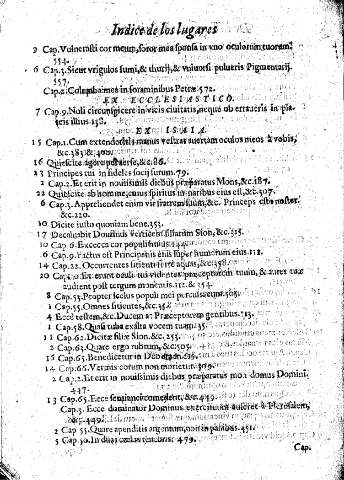 Indice de los lugares
9 Cap. Vulnerasti cor meum, soror mea sponsa in vno oculorum tuorum.
554.
6 Cap.3. Sicut virgulos fumi, & thuris, & vniuersi pulueris Pigmentarij.
557.
Cap.2. Columba mea in foraminibus Petræ 572.
EX ECCLESIASTICO.
7 Cap.9. Noli circunspicere in vicis ciuitatis, neque ob erraueris in plateis illius 138.
EX ISAIA.
15 Cap.1. Cum extenderitis manus vestras auertam oculos meos à vobis,
&c. 383. & 409.
16 Quiescite agere peruerse, &c. 86.
23 Principes tui infideles socij furum. 79.
2 Cap.2. Et erit in nouissimis diebus præparatus Mons, &c. 187.
22 Quiescite ab homine, cuius spiritus in naribus eius est, &c. 307.
6 Cap.3. Apprehendet enim vir fratrem suum, &c. Princeps esto noster.
&c. 220.
10 Dicite iusto quoniam bene. 353.
17 Decaluabit Dominus verticem filiarum Sion, &c. 315.
10 Cap.6. Excæca cor populi huius
6 Cap.9. Factus est Principatus eius super humerum eius. 112.
14 Cap.21. Occurrentes sitienti ferte aquas, &c. 358
20 Cap.30. Et erunt oculi tui videntes præceptorem tuum, & aures tuæ
audient post tergum monentis. 112. & 354.
8 Cap.53. Propter scelus populi mei percussi eum.
1 Cap.55. Omnes sitientes, &c.
4 Ecce testem, &c. Ducem ac Præceptorem gentibus.
1 Cap.58. Quasi tuba exalta vocem tuam.
11 Cap.62. Dicite filiæ Sion, &c. 255.
2 Cap.63. Quare ergo rubrum, &c. 503.
16 Cap.65. Benedicetur in Deo
14 Cap.66. Vermis eorum non morietur. 309.
2 Cap.2. Et erit in nouissimis diebus præparatus mons domus Domini.
13 Cap.65. Ecce serui mei comedent, &c. 449.
Cap.3. Ecce dominator Dominus exercituum auferet à Ierusalem,
&c. 449.
2 Cap.55. Quare appenditis argentum, non in panibus. 451.
5 Cap.30. 479.
Cap.